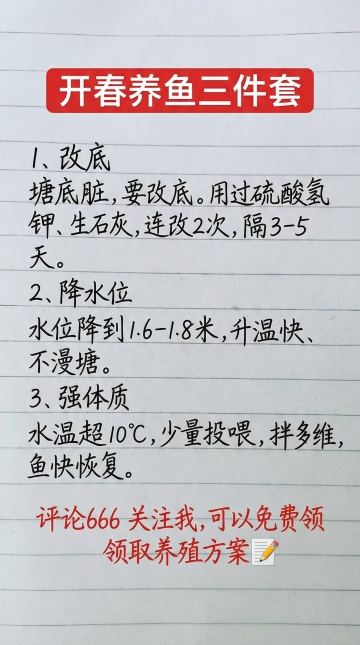 开春养鱼三件套
1、改底
塘底脏,要改底。用过硫酸氢
钾、生石灰,连改2次,隔3-5
天。
2、降水位
水位降到1.6-1.8米,升温快、
不漫塘。
3、强体质
水温超10℃,少量投喂,拌多维,
鱼快恢复。
评论666 关注我,可以免费领
领取养殖方案📝